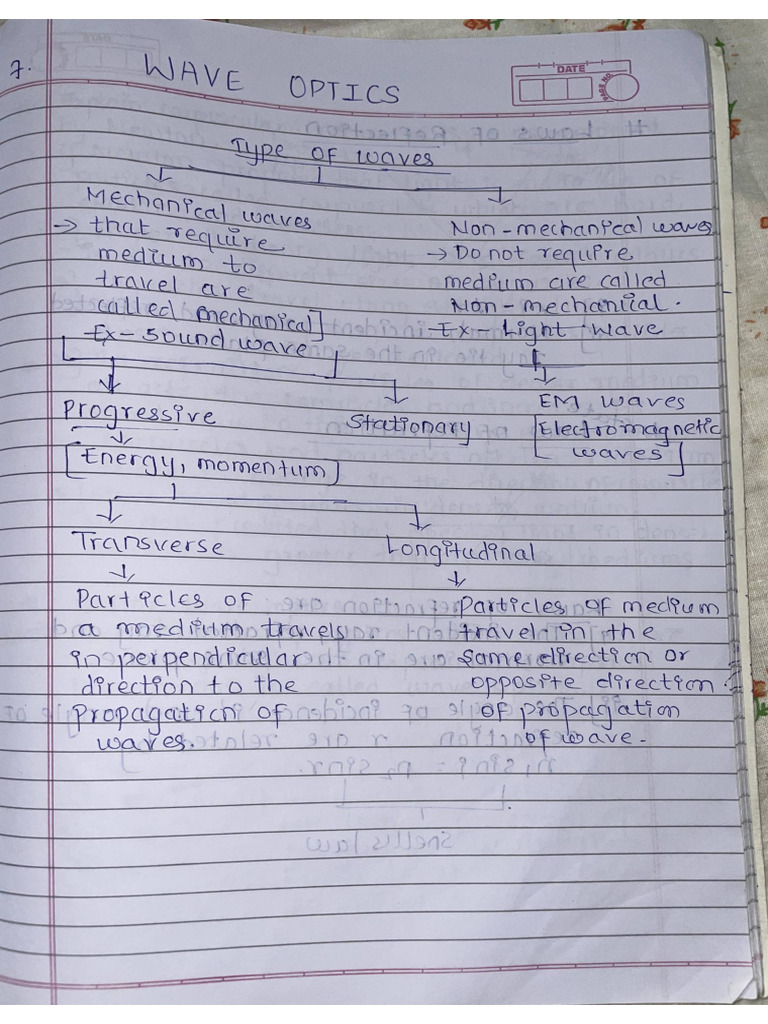 7.
WAVE OPTICS
DATE
PAGE NO.
Type of waves
Mechanical waves
→ that require
medium to
travel are
called mechanical]
Ex- Sound wave
Non-mechanical waves
→ Do not require
medium are called
Non-mechanical.
Ex- Light wave
Progressive
Stationary
EM waves
[Electromagnetic
waves]
[Energy, momentum]
Transverse
Longitudinal
Particles of
a medium travels
in perpendicular
direction to the
propagation of
waves.
Particles of medium
travel in the
same direction or
opposite direction
of propagation
of wave.